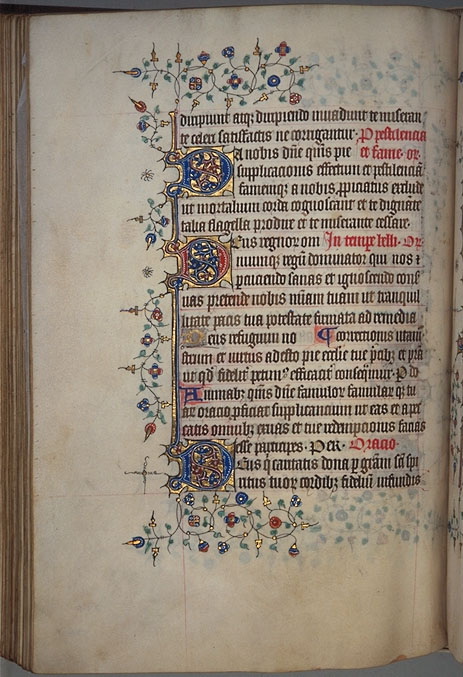 diripiunt atq; diripiendo inuadunt te miseran
te celer satisfactis ne corrigantur. Pestilencia
Da nobis dne quis pie et fame. or.
supplicacionis effectum et pestilencia
famemq; a nobis ppiciatus exclude
ut mortalium corda cognoscant et te dignate
talia flagella prodire et te miserante cessare.
Deus regnor om In tempe belli. Or
niumq; regu dominator qui nos &
pcuciendo sanas et ignoscendo conse
uas pretende nobis miam tuam ut tranquil
litate pacis tua potestate firmata ad remedia
Deus refugium no correctionis utam
strum et uirtus adesto pie ecclie tue pcib; et pra
ut qd fideliter petim9 efficacit consequamur. P d
Animab; quis dne famulor famular q; tu
ar oracio pficiat supplicancium ut eas et a pec
catis omnib; exuas et tue redempcionis facias
esse participes. Per. Oracio.
Deus q caritatis dona p gram sci spi
ritus tuor cordib; fidelium infundis